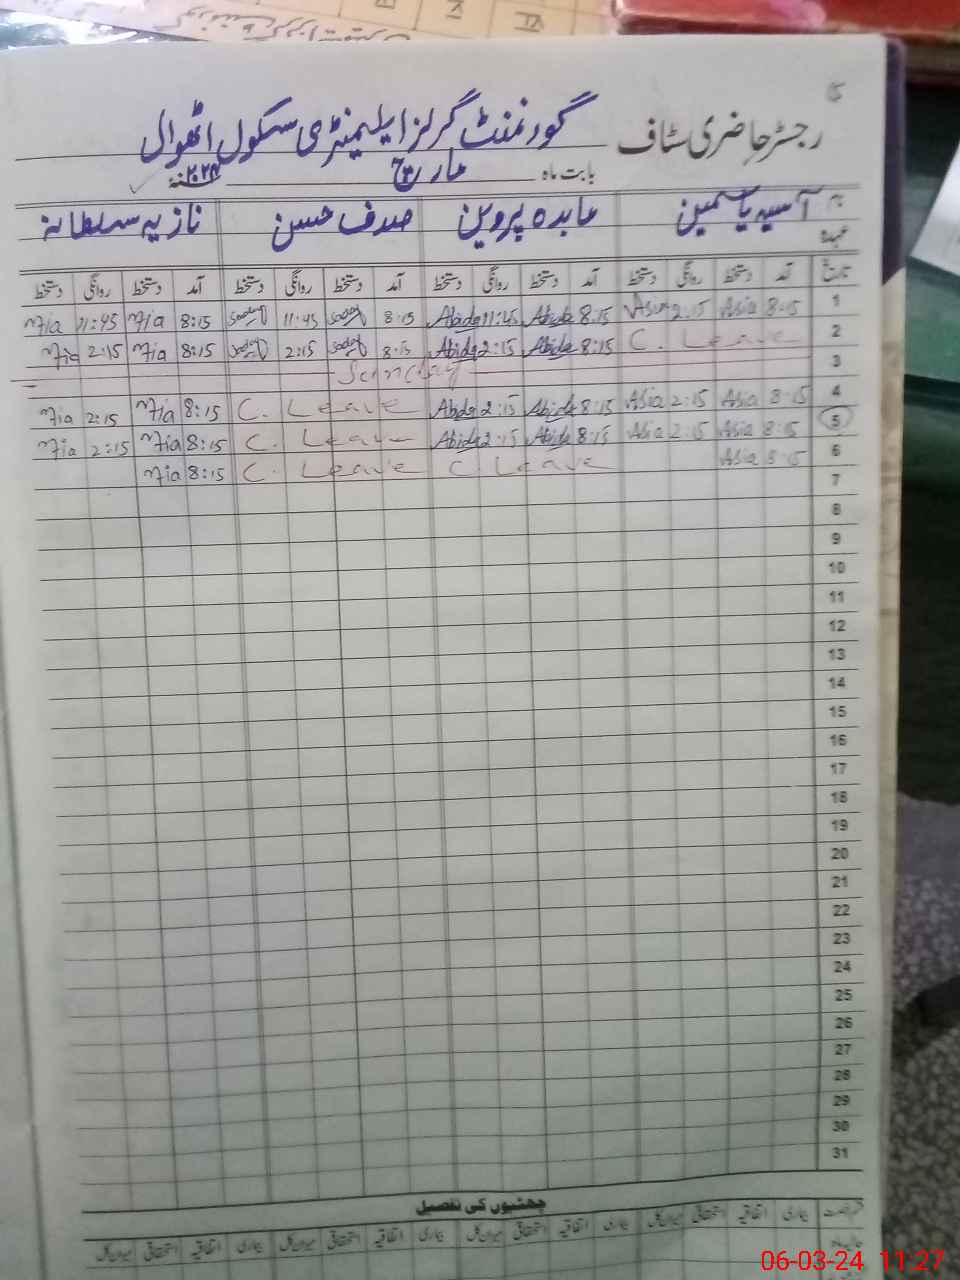 رجسٹر حاضری سٹاف گورنمنٹ گرلز ایلیمنٹری سکول اٹھوال
بابت ماہ مارچ ۲۰۲۴
نام آسیہ یاسمین عابدہ پروین صدف حسن نازیہ سلطانہ
عہدہ
تاریخ آمد دستخط روانگی دستخط آمد دستخط روانگی دستخط آمد دستخط روانگی دستخط آمد دستخط روانگی دستخط
1 8:15 Asia 2:15 Asia 8:15 Abida 11:45 Abida 8:15 Sadaf 11:45 Sadaf 8:15 Nia 11:45 Nia
2 C. Leave 8:15 Abida 2:15 Abida 8:15 Sadaf 2:15 Sadaf 8:15 Nia 2:15 Nia
3 Sunday
4 8:15 Asia 2:15 Asia 8:15 Abida 2:15 Abida C. Leave 8:15 Nia 2:15 Nia
5 8:15 Asia 2:15 Asia 8:15 Abida 2:15 Abida C. Leave 8:15 Nia 2:15 Nia
6 8:15 Asia C Leave C. Leave 8:15 Nia
7
8
9
10
11
12
13
14
15
16
17
18
19
20
21
22
23
24
25
26
27
28
29
30
31
چھٹیوں کی تفصیل
بیماری اتفاقیہ استحقاقی میزان کل بیماری اتفاقیہ استحقاقی میزان کل بیماری اتفاقیہ استحقاقی میزان کل
06-03-24 11:27